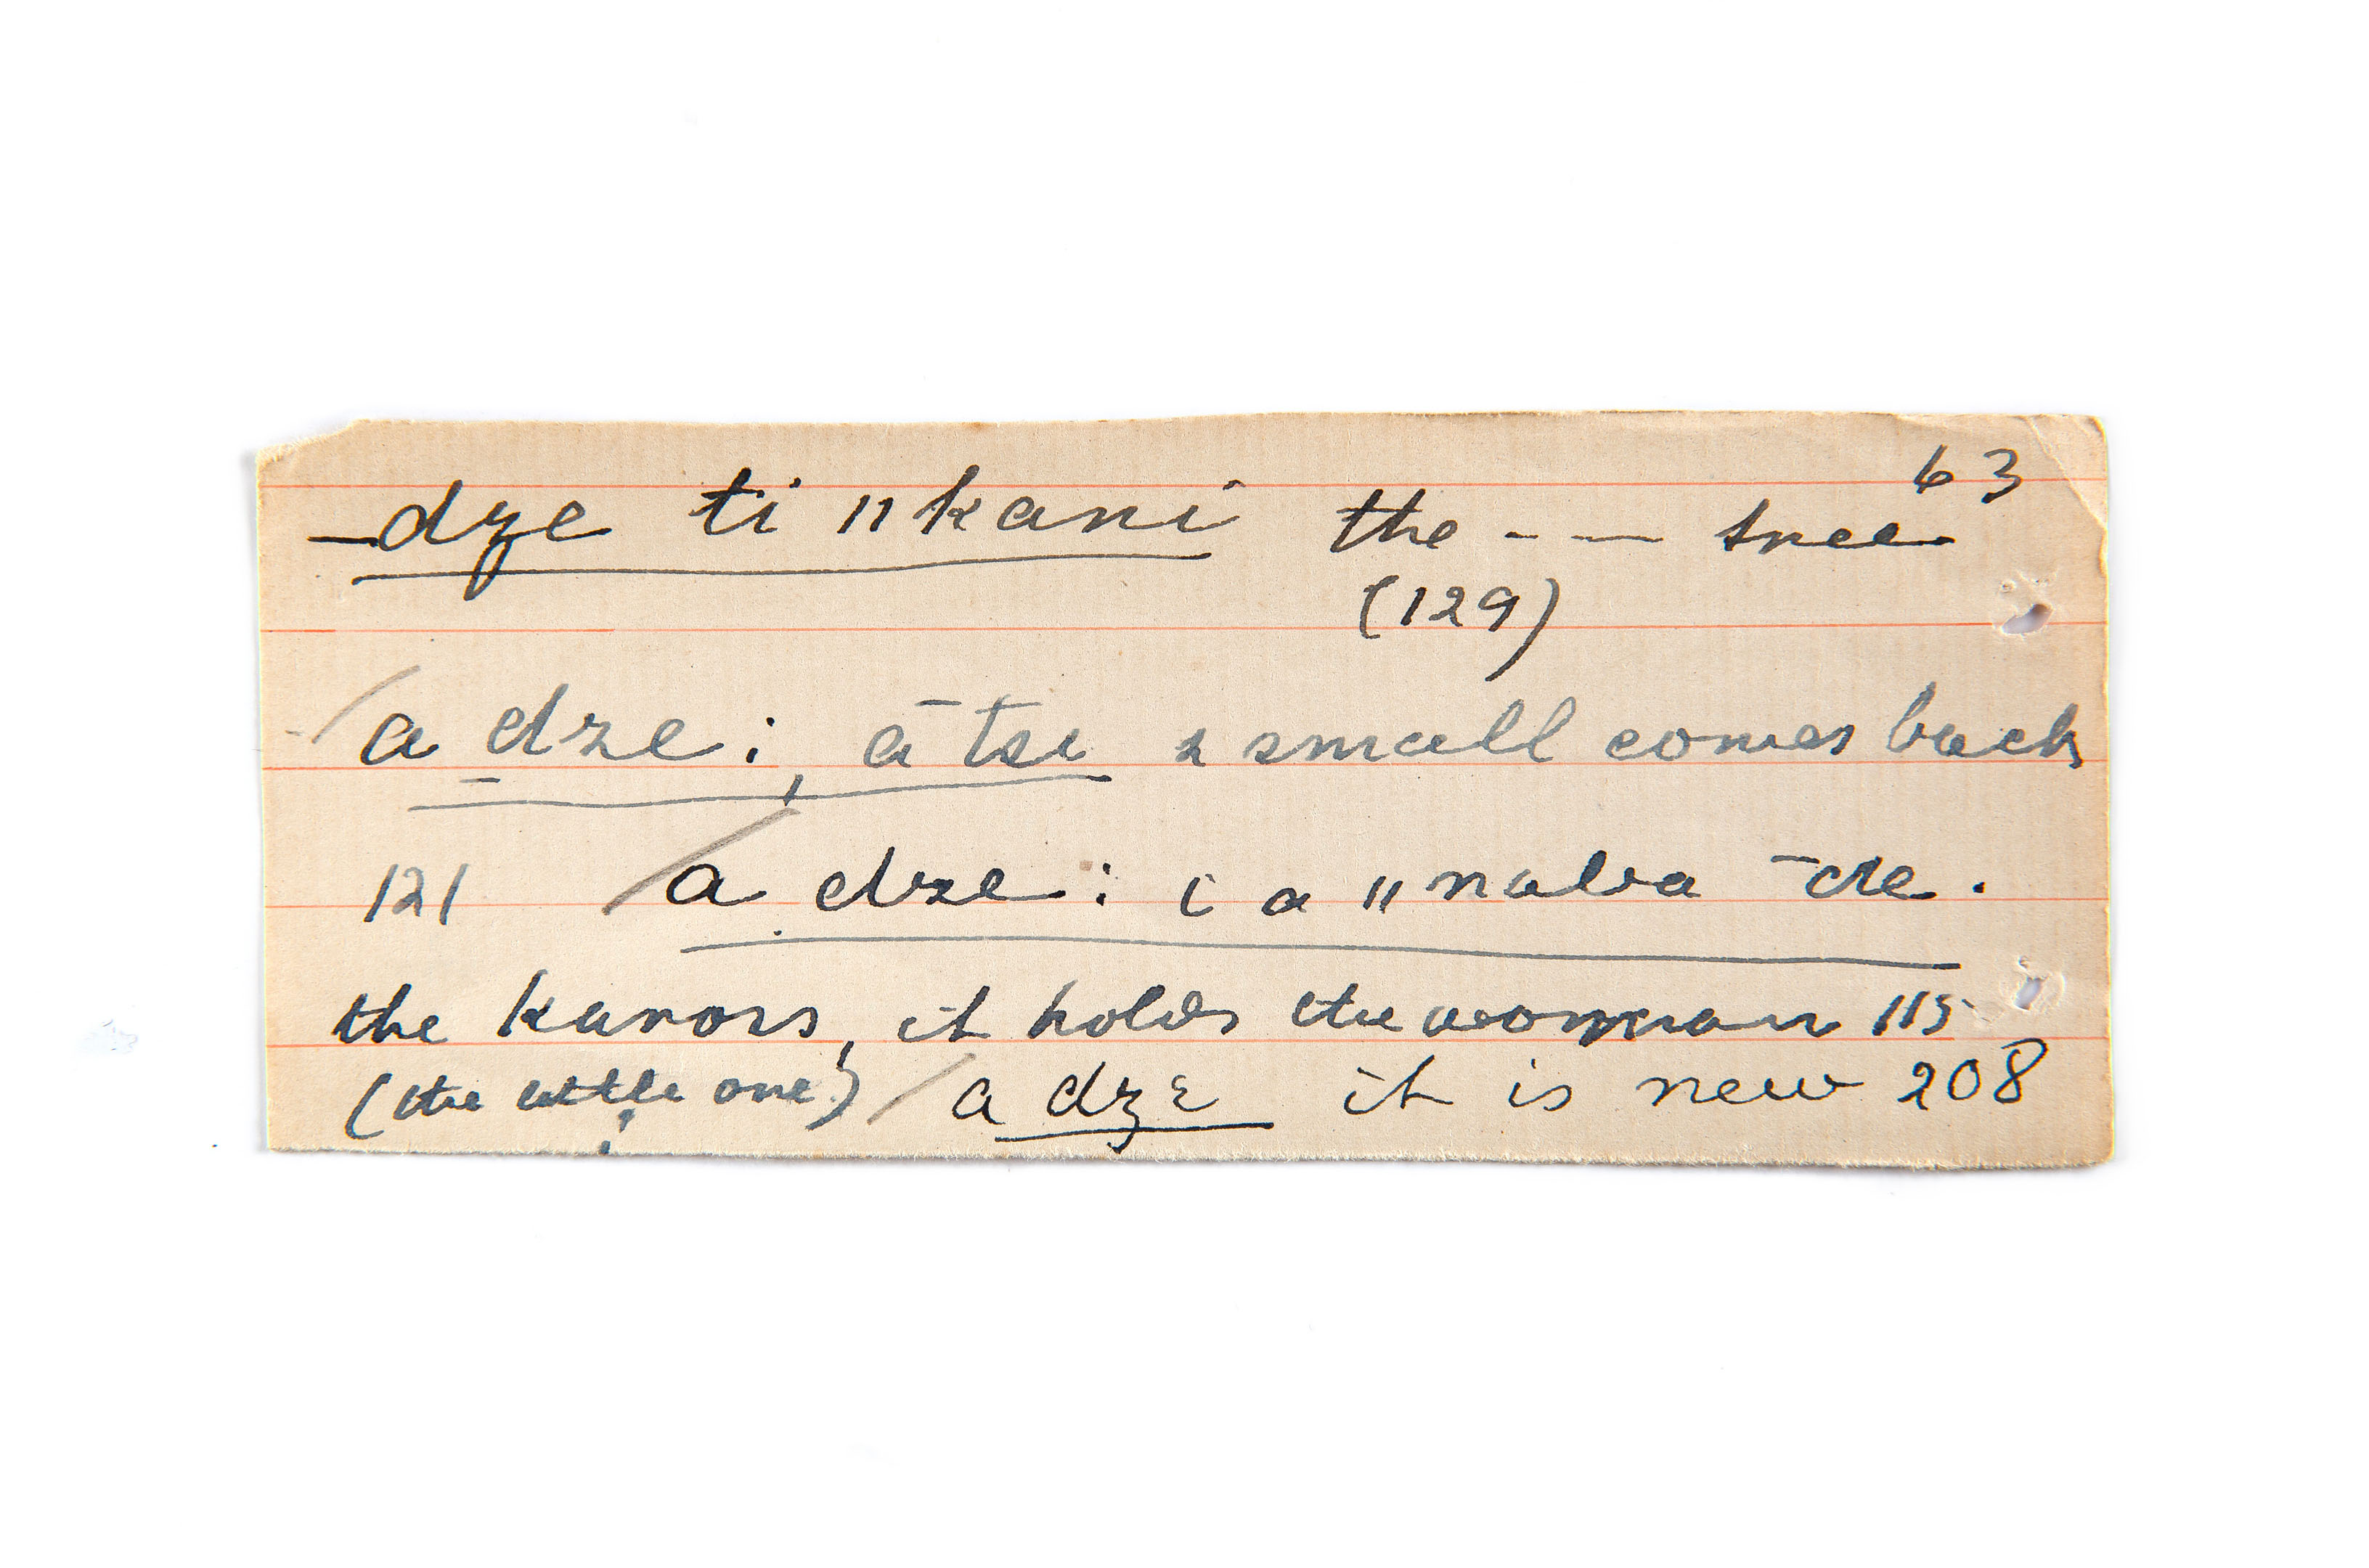 63
—dze ti ǁkani the - — tree
(129)
a dze:, ā tse a small comes back
121 a dze: i a ǁnaba
the kaross, it holds the woman 115
(the little one) a dzɛ it is new 208